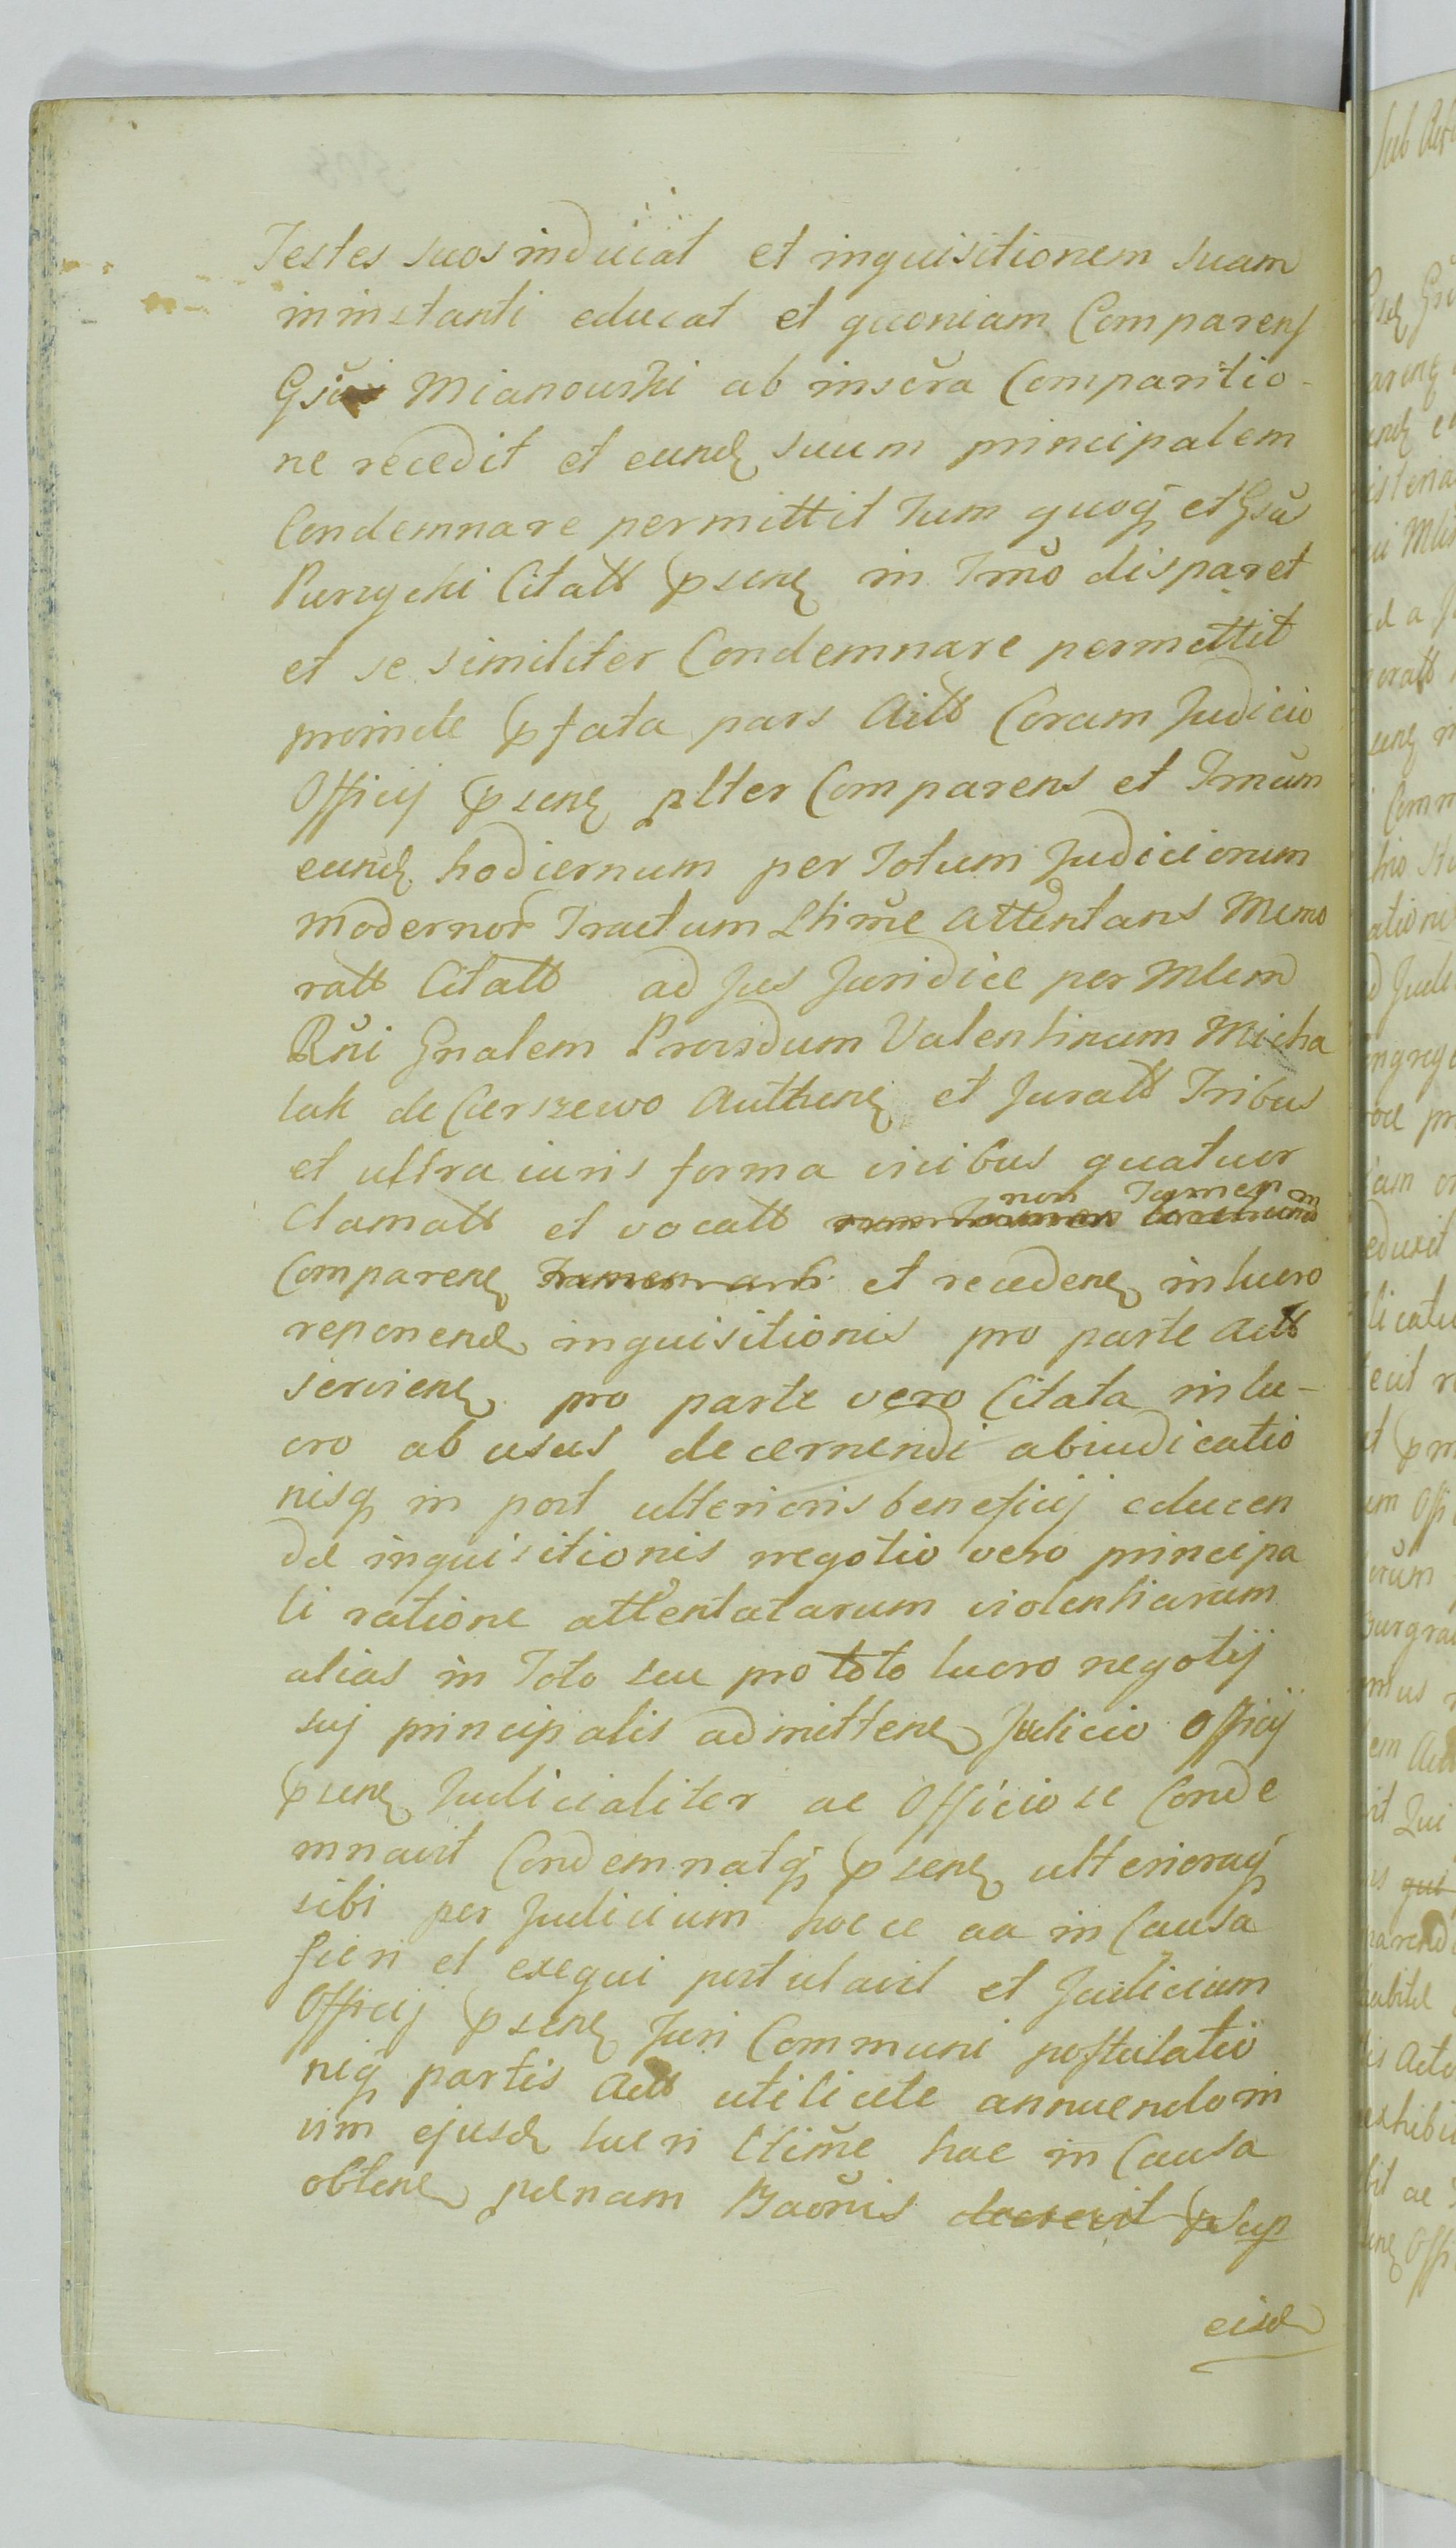 Testes suos inducat et inquisitionem suam
in instanti educat et quoniam Comparens
Gsus Mianowski ab inscra Comparitio-
ne recedit et eund suum principalem
Condemnare permittit Tum quoq et Gsus
Pungchi Citatt psens in Tmo disparet
et se similiter Condemnare permittit
proinde pfata pars Actt Coram Judicio
Officij psens plter Comparens et Tmum
eund hodiernum per Totum Judiciorum
modernor Tractum Ltime attentans Memo
ratt Citatt ad Jus Juridice per Mlem
Rni Gnalem Providum Valentinum Micha
lak de Cierszewo Authene et Juratt Tribus
et ultra iuris forma vicibus quatuor
non Tamen in
Clamatt et vocatt
Comparens et recedens in lucro
reponend inquisitionis pro parte Actt
serviens pro parte vero Citata in lu-
cro ab usus decernendi abiudicatio
nisq in post ulterioris beneficij educen
dae inquisitionis negotio vero principa
li ratione attentatarum violentiarum
alias in Toto seu pro toto lucro negotij
suj principalis admittens Judicio Officij
psens Judicialiter ac Officiose Conde
mnavit Condemnatq psens ulterioraq
sibi per Judicium hocce aa in Causa
fieri et exequi postulavit et Judicium
Officij psens Juri Communi postulatio
niq partis Actt utilicite annuendo in
vim ejusd lucri Ltime hac in Causa
obtens paenam Baonis decrevit psup
eisd